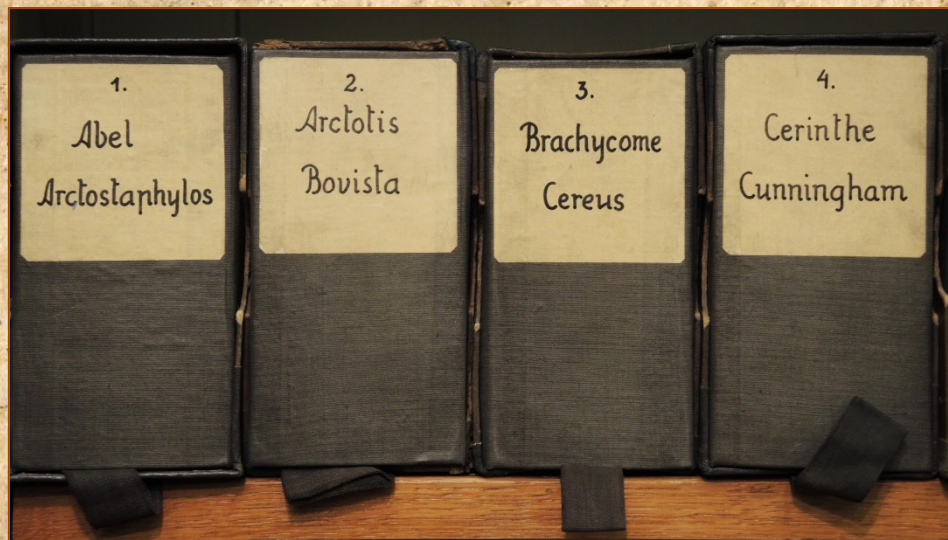 1.
Abel
Arctostaphylos
2.
Arctotis
Bovista
3.
Brachycome
Cereus
4.
Cerinthe
Cunningham